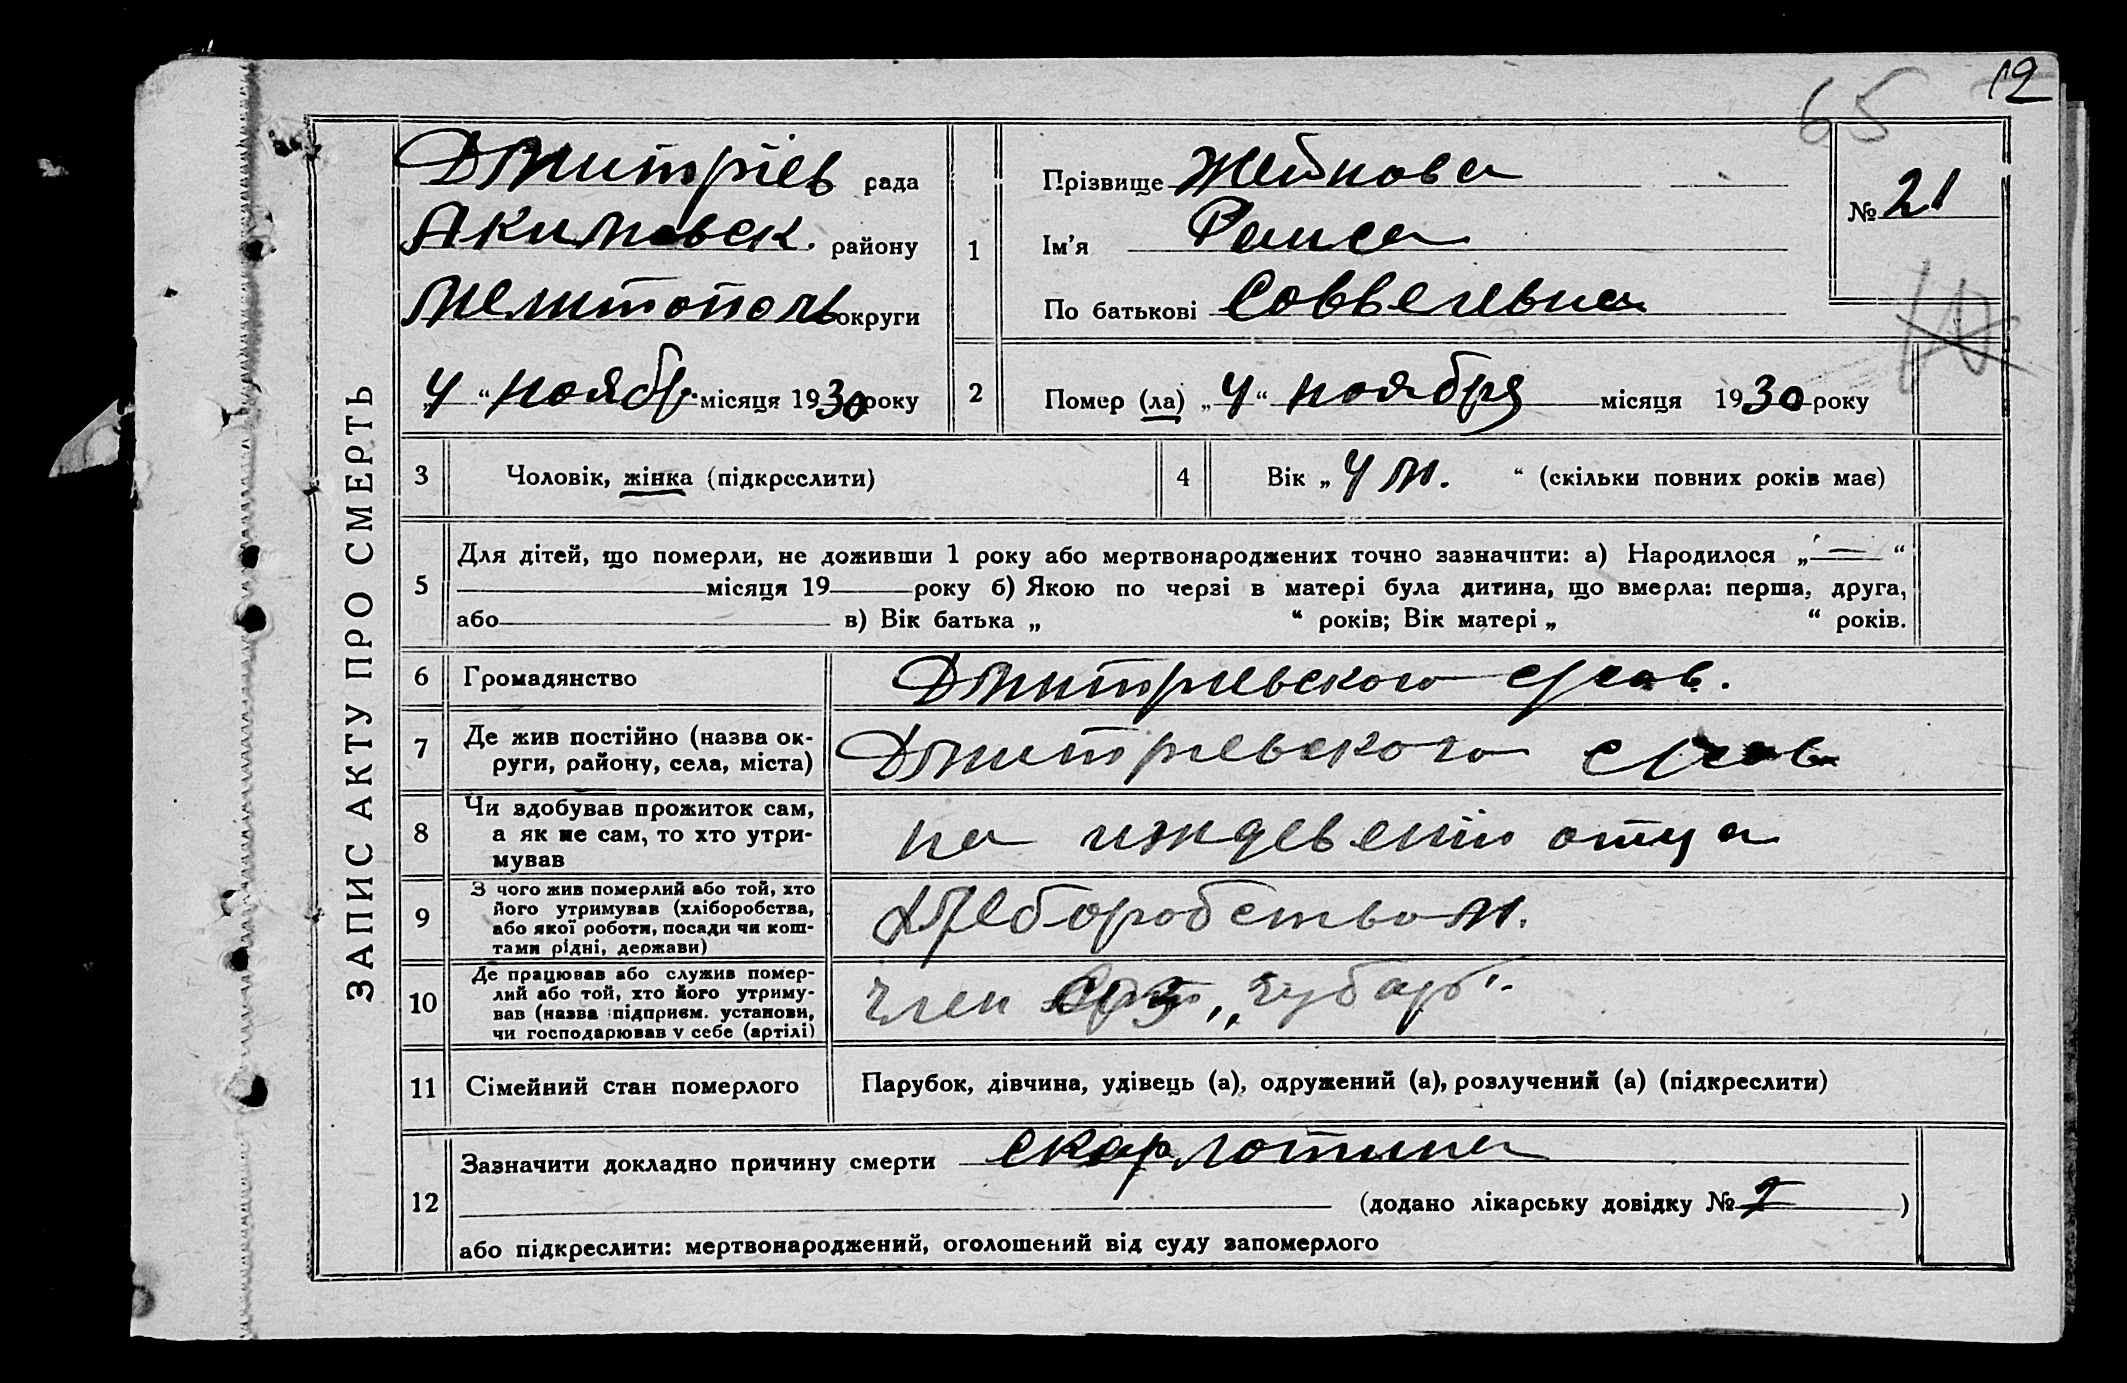 12
65
ЗАПИС АКТУ ПРО СМЕРТЬ
Дмитріев рада
Акимовск. району
Мелитополь округи
„4“ ноябр. місяця 1930 року
1
Прізвище Жейнова
Ім’я Раиса
По батькові Савельевна
№ 21
2 Помер (ла) „4“ ноября місяця 1930 року
3 Чоловік, жінка (підкреслити)
4 Вік „4 м. “ (скільки повних років має)
5 Для дітей, що померли, не доживши 1 року або мертвонароджених точно зазначити: а) Народилося „—“
місяця 19 року б) Якою по черзі в матері була дитина, що вмерла: перша, друга,
або в) Вік батька „ “ років; Вік матері „ “ років.
6 Громадянство Дмитриевского
7 Де жив постійно (назва ок-
руги, району, села, міста) Дмитриевского
8 Чи здобував прожиток сам,
а як не сам, то хто утри-
мував на иждевении отца
9 З чого жив померлий або той, хто
його утримував (хліборобства,
або якої роботи, посади чи кош-
тами рідні, держави) хлеборобством.
10 Де працював або служив помер-
лий або той, хто його утриму-
вав (назва підприєм. установи,
чи господарював у себе (артілі) член
11 Сімейний стан померлого Парубок, дівчина, удівець (а), одружений (а), розлучений (а) (підкреслити)
12 Зазначити докладно причину смерти скарлотина
(додано лікарську довідку № )
або підкреслити: мертвонароджений, оголошений від суду запомерлого